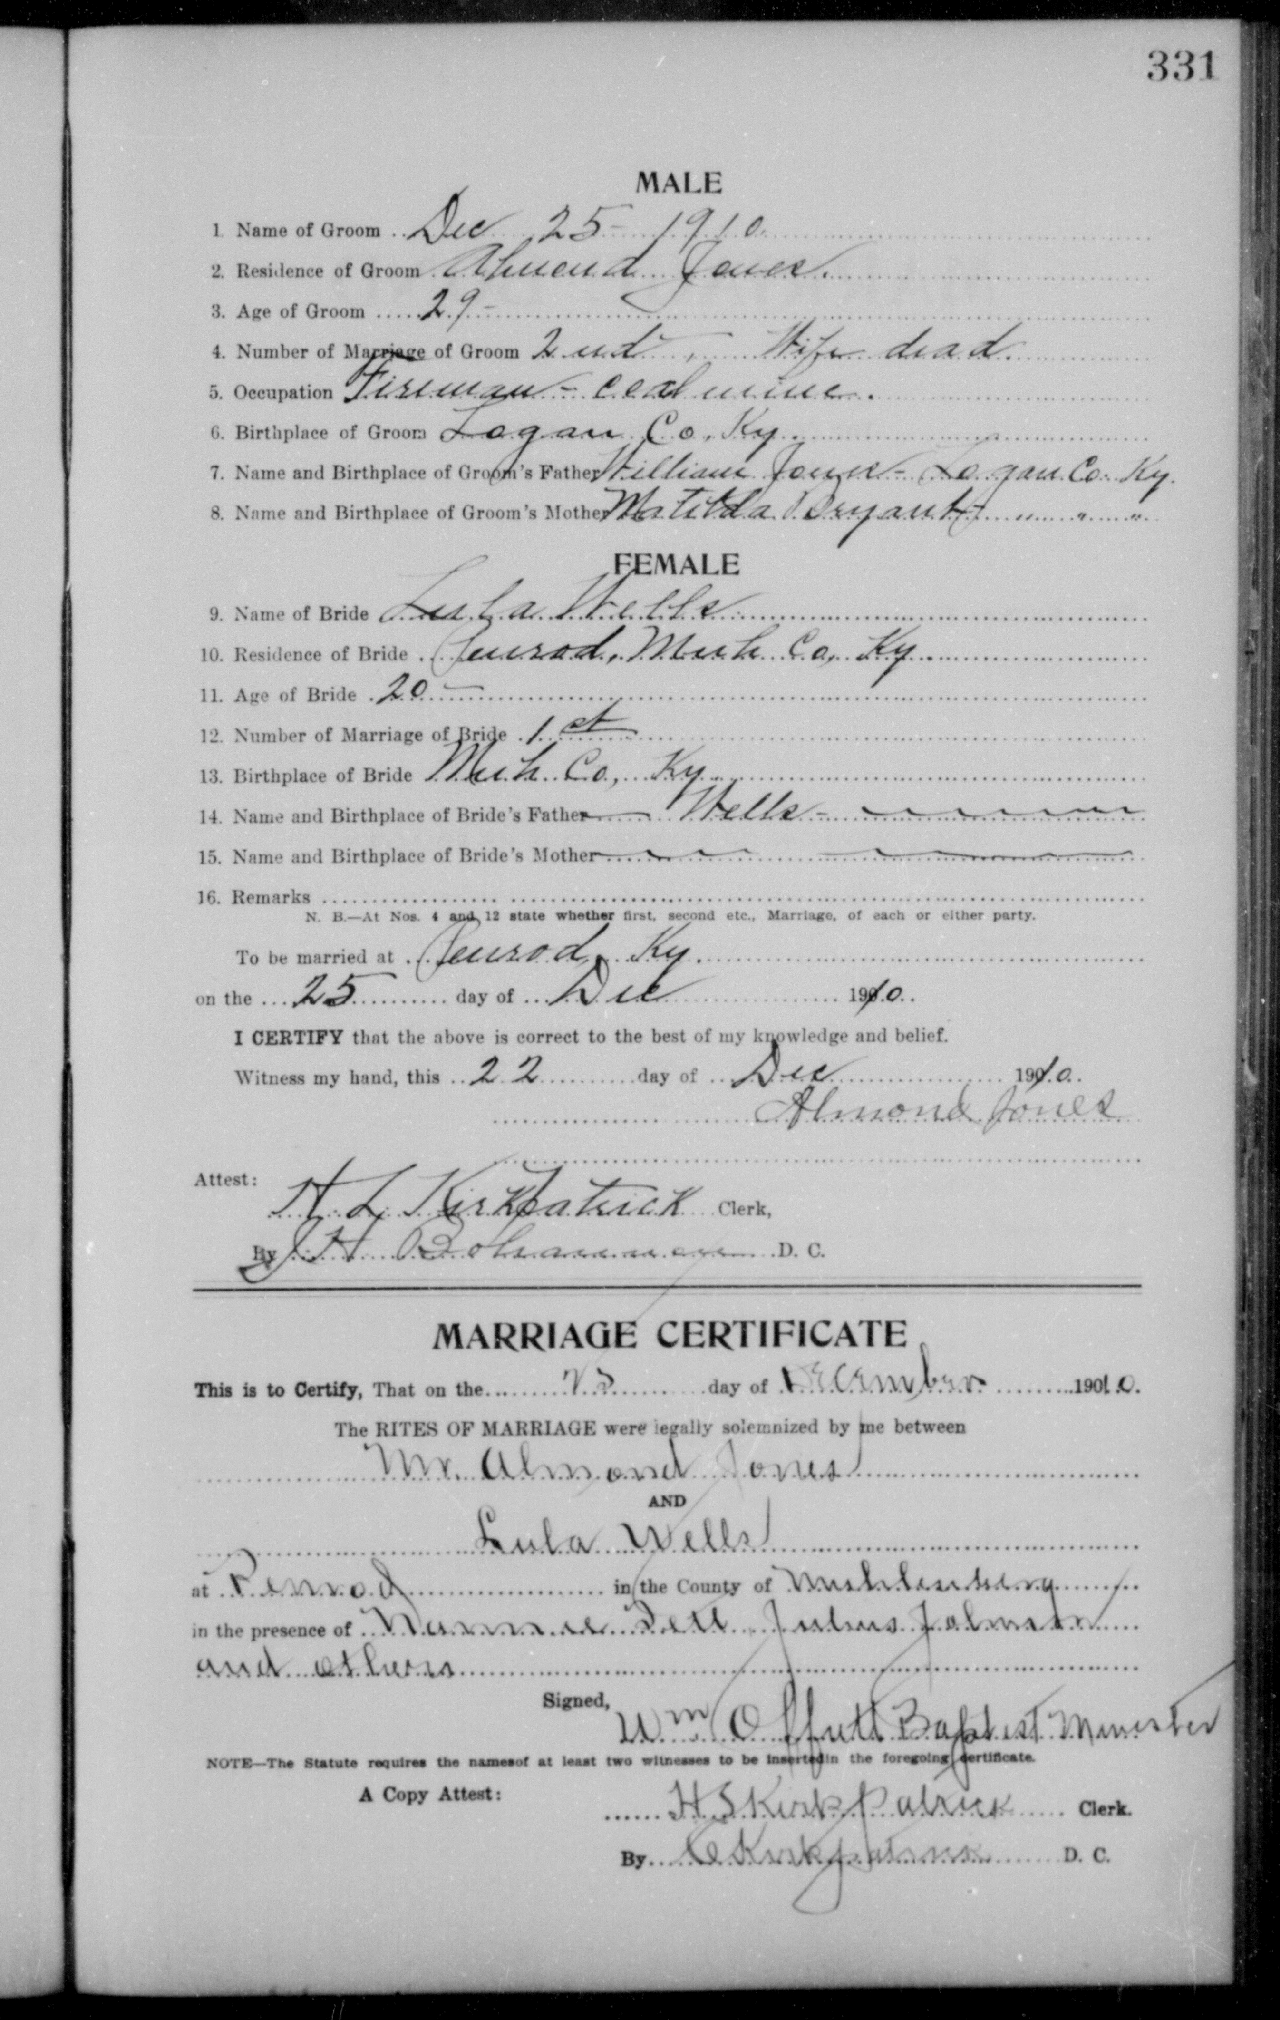 331
MALE
1. Name of Groom Dec 25 - 1910.
2. Residence of Groom Almond Jones.
3. Age of Groom 29 -
4. Number of Marriage of Groom 2nd - Wife dead.
5. Occupation Fireman - coal mine.
6. Birthplace of Groom Logan Co. Ky.
7. Name and Birthplace of Groom's Father William Jones - Logan Co. Ky.
8. Name and Birthplace of Groom's Mother Matilda Bryant " " "
FEMALE
9. Name of Bride Lula Wells
10. Residence of Bride Penrod, Muh Co, Ky.
11. Age of Bride 20 -
12. Number of Marriage of Bride 1st
13. Birthplace of Bride Muh Co, Ky.
14. Name and Birthplace of Bride's Father — Wells -
15. Name and Birthplace of Bride's Mother
16. Remarks
N. B.—At Nos. 4 and 12 state whether first, second etc., Marriage, of each or either party.
To be married at Penrod, Ky.
on the 25 day of Dec 1910.
I CERTIFY that the above is correct to the best of my knowledge and belief.
Witness my hand, this 22 day of Dec 1910.
Almond Jones
Attest:
H L Kirkpatrick Clerk,
By J H Bohannon D. C.
MARRIAGE CERTIFICATE
This is to Certify, That on the 25 day of December 1910.
The RITES OF MARRIAGE were legally solemnized by me between
Mr. Almond Jones
AND
Lula Wells
at Penrod in the County of Muhlenberg
in the presence of Nannie Julius Johnson
and others
Signed,
Wm Offutt Baptist Minister
NOTE—The Statute requires the namesof at least two witnesses to be insertedin the foregoing certificate.
A Copy Attest:
H S Kirkpatrick Clerk.
By Kirkpatrick D. C.